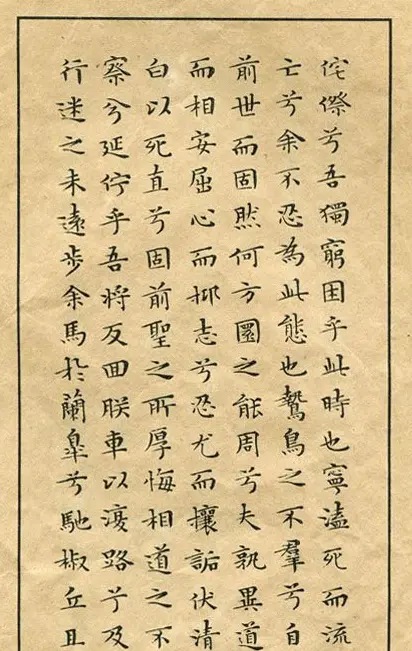 侘傺兮吾獨窮困乎此時也寧溘死而流
亡兮余不忍為此態也鷙鳥之不羣兮自
前世而固然何方圜之能周兮夫孰異道
而相安屈心而抑志兮忍尤而攘詬伏清
白以死直兮固前聖之所厚悔相道之不
察兮延佇乎吾將反回朕車以復路兮及
行迷之未遠步余馬於蘭皋兮馳椒丘且